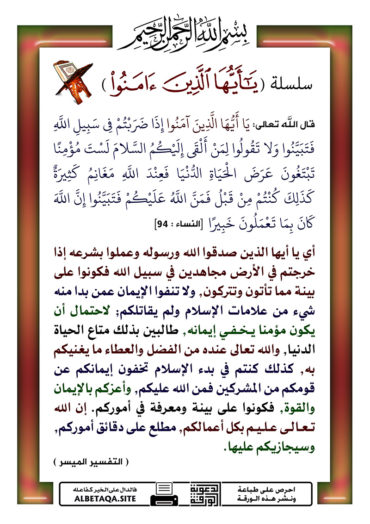 بسم الله الرحمن الرحيم
سلسلة ( يَـٰٓأَيُّهَا ٱلَّذِينَ ءَامَنُوا۟ )
قال الله تعالى: يَا أَيُّهَا الَّذِينَ آمَنُوا إِذَا ضَرَبْتُمْ فِي سَبِيلِ اللَّهِ
فَتَبَيَّنُوا وَلَا تَقُولُوا لِمَنْ أَلْقَى إِلَيْكُمُ السَّلَامَ لَسْتَ مُؤْمِنًا
تَبْتَغُونَ عَرَضَ الْحَيَاةِ الدُّنْيَا فَعِنْدَ اللَّهِ مَغَانِمُ كَثِيرَةٌ
كَذَلِكَ كُنْتُمْ مِنْ قَبْلُ فَمَنَّ اللَّهُ عَلَيْكُمْ فَتَبَيَّنُوا إِنَّ اللَّهَ
كَانَ بِمَا تَعْمَلُونَ خَبِيرًا [النساء : 94]
أي يا أيها الذين صدقوا الله ورسوله وعملوا بشرعه إذا
خرجتم في الأرض مجاهدين في سبيل الله فكونوا على
بينة مما تأتون وتتركون, ولا تنفوا الإيمان عمن بدا منه
شيء من علامات الإسلام ولم يقاتلكم; لاحتمال أن
يكون مؤمنا يخفي إيمانه, طالبين بذلك متاع الحياة
الدنيا, والله تعالى عنده من الفضل والعطاء ما يغنيكم
به, كذلك كنتم في بدء الإسلام تخفون إيمانكم عن
قومكم من المشركين فمن الله عليكم, وأعزكم بالإيمان
والقوة, فكونوا على بينة ومعرفة في أموركم. إن الله
تعالى عليم بكل أعمالكم, مطلع على دقائق أموركم,
وسيجازيكم عليها.
( التفسير الميسر )
احرص على طباعة
ونشر هذه الورقة
الدعوية
الورقة
فالدال على الخير كفاعله
ALBETAQA.SITE